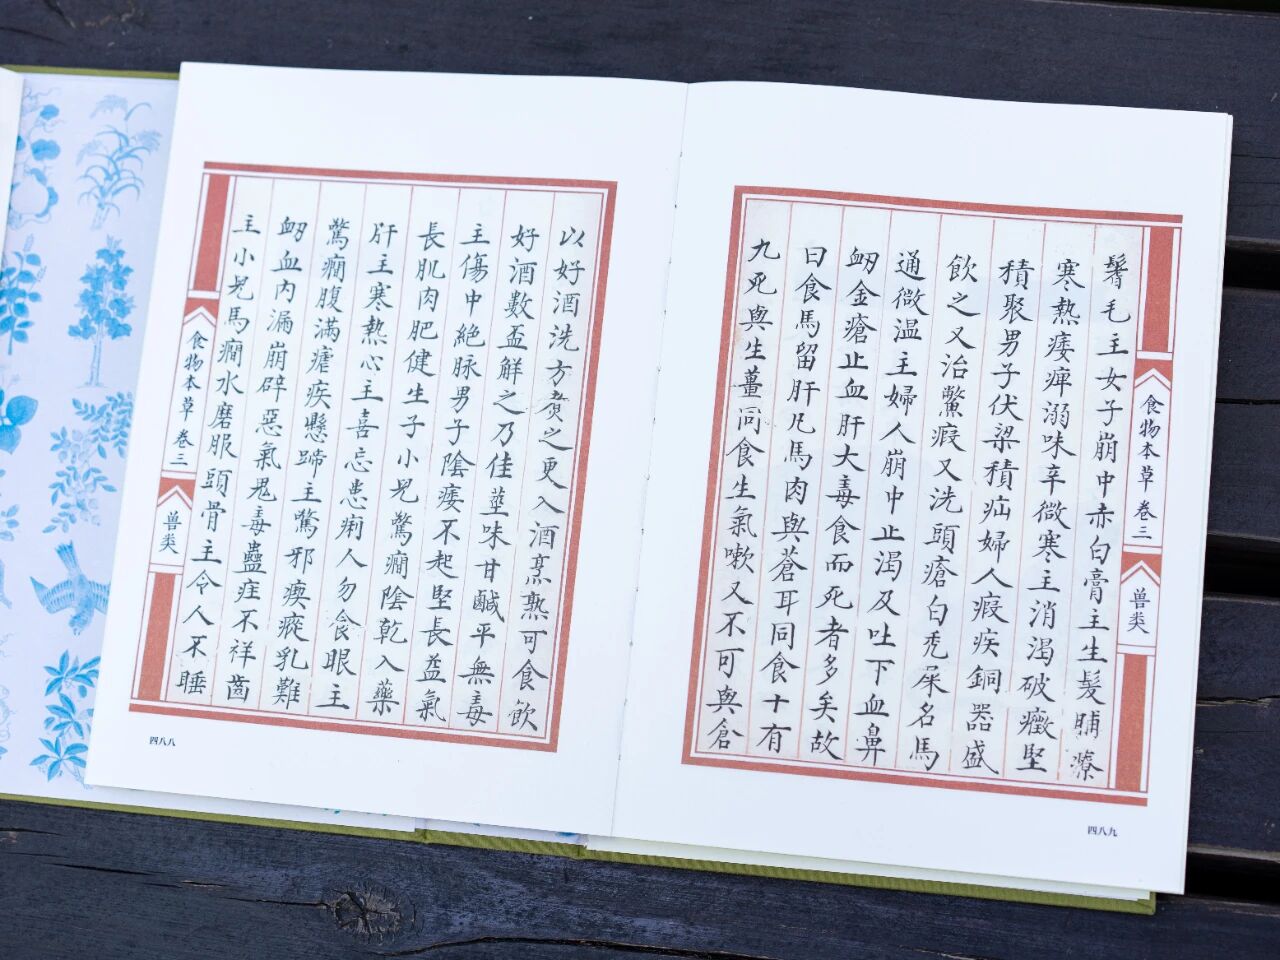 以好酒洗方煑之更入酒烹熟可食飲
好酒數盃解之乃佳莖味甘鹹平無毒
主傷中絶脉男子陰痿不起堅長益氣
長肌肉肥健生子小兒驚癇陰乾入藥
肝主寒熱心主喜忘患痢人勿食眼主
驚癇腹滿瘧疾懸蹄主驚邪瘈瘲乳難
衂血內漏崩辟惡氣鬼毒蠱疰不祥齒
主小兒馬癇水磨服頭骨主令人不睡
食物本草 卷三
兽类
四八八
食物本草 卷三
兽类
鬐毛主女子崩中赤白膏主生髮脯療
寒熱痿痺溺味辛微寒主消渴破癥堅
積聚男子伏梁積疝婦人瘕疾銅器盛
飲之又治鱉瘕又洗頭瘡白禿屎名馬
通微温主婦人崩中止渴及吐下血鼻
衂金瘡止血肝大毒食而死者多矣故
曰食馬留肝凡馬肉與蒼耳同食十有
九死與生薑同食生氣嗽又不可與倉
四八九